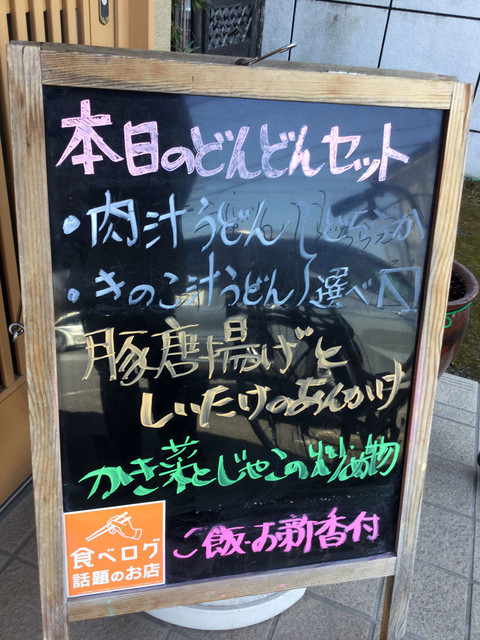 本日のどんどんセット
・肉汁うどん
どちらか
・きのこ汁うどん
選べ〼
豚唐揚げと
しいたけのあんかけ
かき菜とじゃこの炒め物
ご飯・お新香付
食べログ
話題のお店